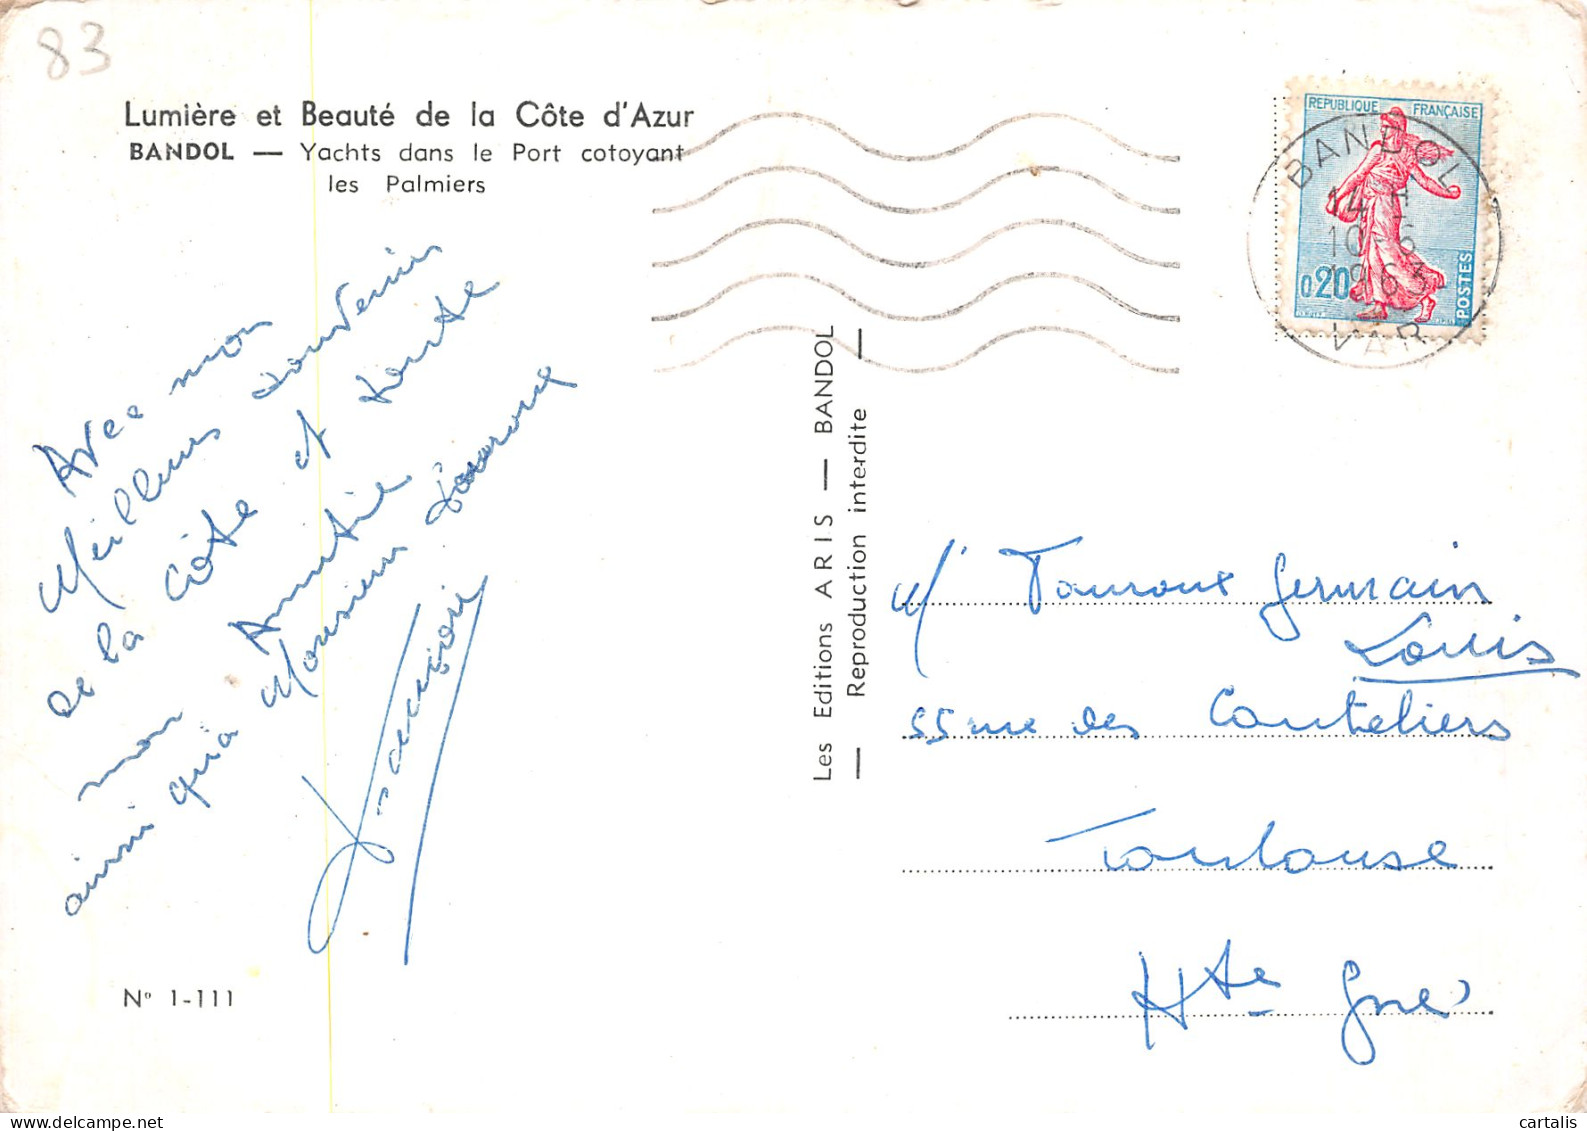 83
Lumière et Beauté de la Côte d'Azur
BANDOL — Yachts dans le Port cotoyant
les Palmiers
Avec mon
Meilleurs souvenirs
de la Côte et toute
mon Amitié
ainsi qu'a Monsieur
N° 1-111
Les Editions ARIS — BANDOL
— Reproduction interdite —
REPUBLIQUE FRANÇAISE
0,20
POSTES
BANDOL
14 H
10-6
1963
VAR
M' Tauroux Germain
Louis
55 rue des Couteliers
Toulouse
Hte Gne
cartalis
www.delcampe.net